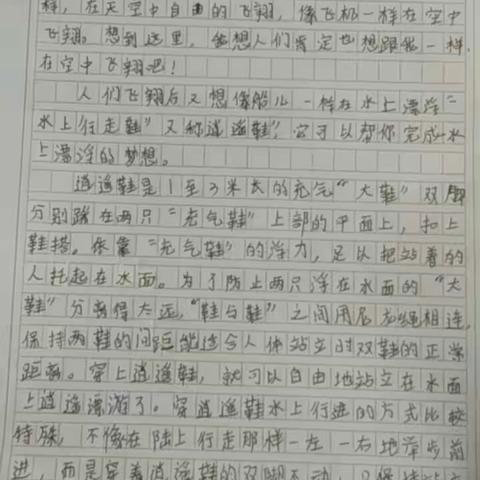 样，在天空中自由的飞翔，像飞机一样在空中
飞翔。想到这里，我想人们肯定也想跟我一样，
在空中飞翔吧！
人们飞翔后又想像船儿一样在水上漂浮“
水上行走鞋”又称逍遥鞋”，它可以帮你完成水
上漂浮的梦想。
逍遥鞋是1至3米长的充气“大鞋”双脚
分别踏在两只“充气鞋”上部的平面上，扣上
鞋搭。依靠“充气鞋”的浮力，足以把站着的
人托起在水面。为了防止两只浮在水面的“大
鞋”分离得太远，“鞋与鞋”之间用尼龙绳相连，
保持两鞋的间距能适合人体站立时双鞋的正常
距离。穿上逍遥鞋，就可以自由地站立在水面
上逍遥漂游了。穿逍遥鞋水上行进的方式比较
特殊，不像在陆上行走那样一左一右地举步前
进，而是穿着逍遥鞋的双脚不动，只保持站立